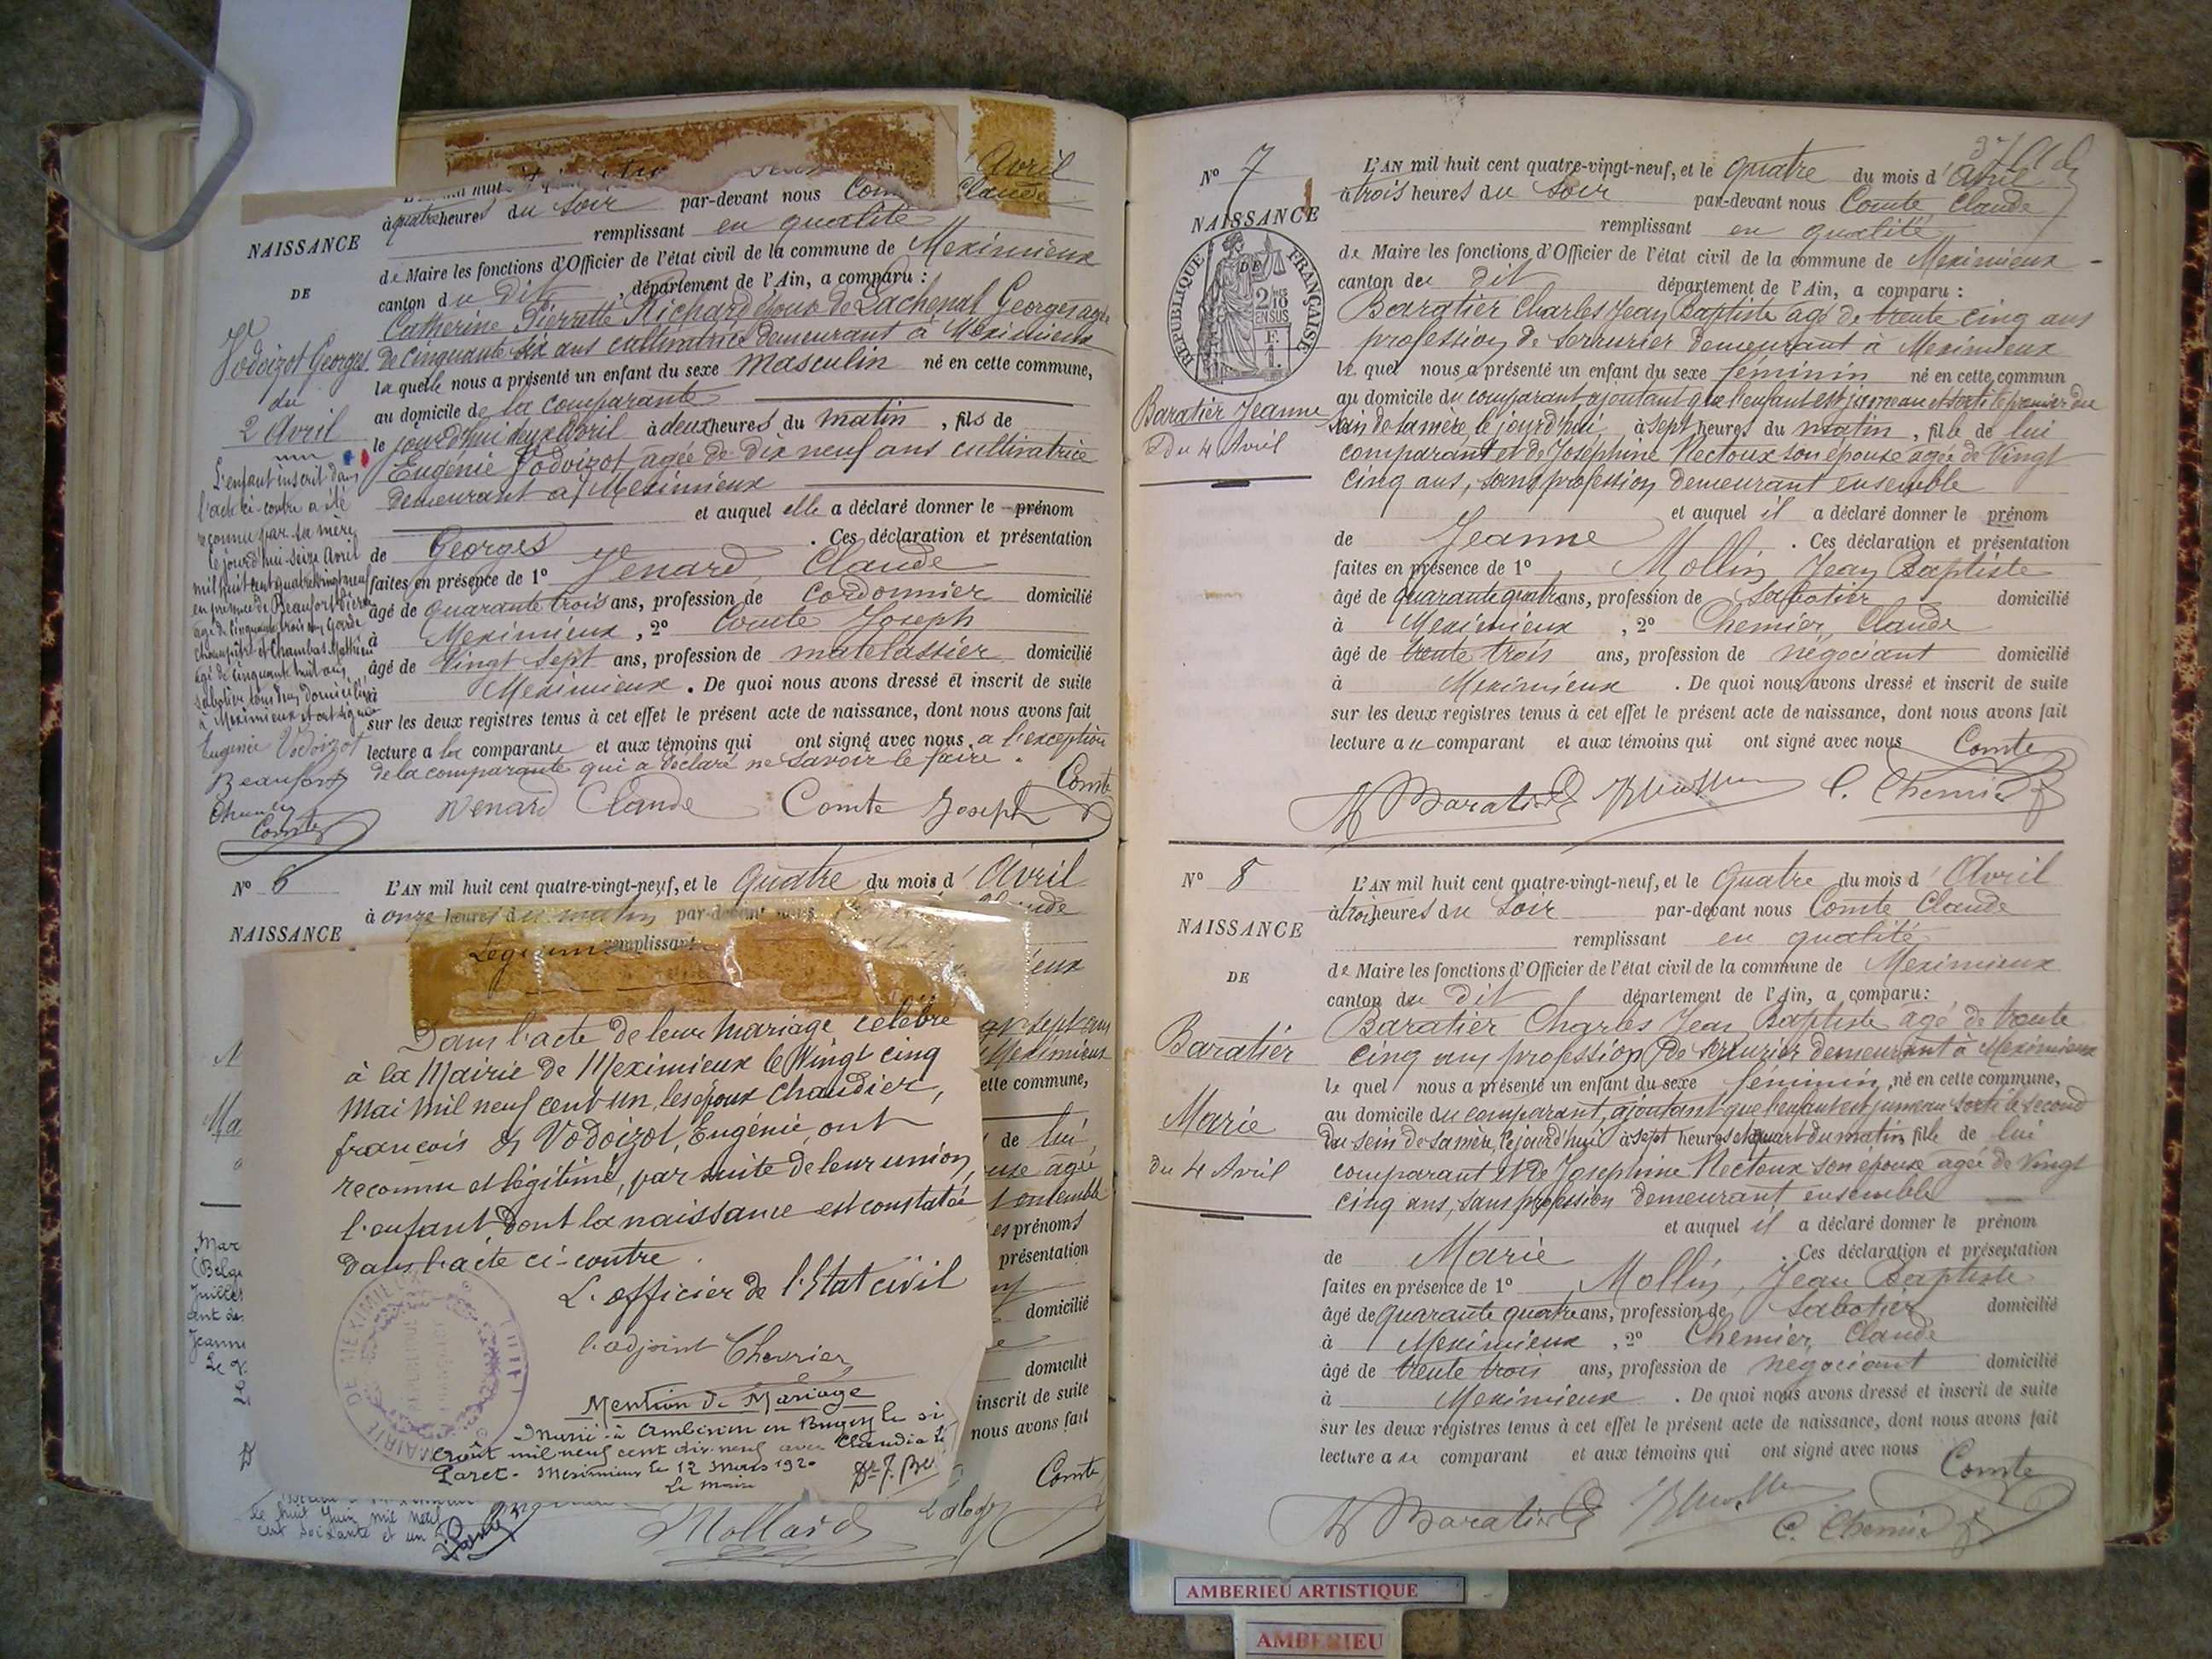 Avril
à quatre heures du soir par-devant nous Comte Claude
remplissant en qualité
de Maire les fonctions d'Officier de l'état civil de la commune de Meximieux
canton du dit, département de l'Ain, a comparu :
Catherine Pierrette Richard épouse de Lachenal Georges agée
de cinquante six ans cultivatrice demeurant à Meximieux
laquelle nous a présenté un enfant du sexe masculin né en cette commune,
au domicile de la comparante
le jourd'hui deux Avril à deux heures du matin, fils de
Eugénie Vodoizot agée de dix neuf ans cultivatrice
demeurant à Meximieux
et auquel elle a déclaré donner le prénom
de Georges. Ces déclaration et présentation
faites en présence de 1° Venard, Claude
âgé de quarante trois ans, profession de cordonnier domicilié
à Meximieux, 2° Comte Joseph
âgé de Vingt sept ans, profession de matelassier domicilié
à Meximieux. De quoi nous avons dressé et inscrit de suite
sur les deux registres tenus à cet effet le présent acte de naissance, dont nous avons fait
lecture a la comparante et aux témoins qui ont signé avec nous a l'exception
de la comparante qui a déclaré ne savoir le faire.
Comte
Venard Claude Comte Joseph
NAISSANCE
DE
Vodoizot Georges
du
2 Avril
L'enfant inscrit dans
l'acte ci-contre a été
reconnu par sa mère
le jourd'hui seize Avril
mil huit cent quatre vingt neuf
en présence de Beaufort Pierre
agé de cinquante trois ans, Garde
champêtre et Chambas Mathieu
agé de cinquante huit ans,
sabotier tous deux domiciliés
à Meximieux et ont signé
Eugénie Vodoizot
Beaufort
Comte
N° 6
NAISSANCE
L'AN mil huit cent quatre-vingt-neuf, et le Quatre du mois d'Avril
à onze heures du matin par-devant nous Claude
remplissant
Dans l'acte de leur mariage célébré
à la Mairie de Meximieux le Vingt cinq
Mai mil neuf cent un, les époux Chaudier,
françois & Vodoizot, Eugénie, ont
reconnu et légitimé, par suite de leur union,
l'enfant, dont la naissance est constatée
dans l'acte ci-contre.
L'officier de l'Etat civil
l'adjoint Chevrier
MAIRIE DE MEXIMIEUX
Mention de Mariage
Marié à Ambérieu en Bugey le
Août mil neuf cent dix-neuf avec Claudia
Paret. Meximieux le 12 Mars 1920
Le Maire
sept ans
Meximieux
cette commune,
de lui
agée
ensemble
prénoms
présentation
domicilié
domicilié
inscrit de suite
nous avons fait
Comte
Mollard
le huit Juin mil neuf
cent soixante et un
N° 7
NAISSANCE
RÉPUBLIQUE FRANÇAISE
2/10 EN SUS
Baratier Jeanne
Du 4 Avril
L'AN mil huit cent quatre-vingt-neuf, et le quatre du mois d'Avril
à trois heures du soir par-devant nous Comte Claude
remplissant en qualité
de Maire les fonctions d'Officier de l'état civil de la commune de Meximieux
canton du dit département de l'Ain, a comparu :
Baratier Charles Jean Baptiste agé de trente cinq ans
profession de serrurier demeurant à Meximieux
lequel nous a présenté un enfant du sexe féminin né en cette commun
au domicile du comparant ajoutant que l'enfant est jumeau et sorti le premier du
sein de sa mère, le jourd'hui à sept heures du matin, fille de lui
comparant et de Joséphine Nectoux son épouse agée de Vingt
cinq ans, sans profession demeurant ensemble
et auquel il a déclaré donner le prénom
de Jeanne. Ces déclaration et présentation
faites en présence de 1° Mollin Jean Baptiste
âgé de quarante quatre ans, profession de Sabotier domicilié
à Meximieux, 2° Chemier, Claude
âgé de trente trois ans, profession de négociant domicilié
à Meximieux. De quoi nous avons dressé et inscrit de suite
sur les deux registres tenus à cet effet le présent acte de naissance, dont nous avons fait
lecture au comparant et aux témoins qui ont signé avec nous
Comte
Baratier C. Chemier
N° 8
NAISSANCE
DE
Baratier
Marie
du 4 Avril
L'AN mil huit cent quatre-vingt-neuf, et le quatre du mois d'Avril
à trois heures du soir par-devant nous Comte Claude
remplissant en qualité
de Maire les fonctions d'Officier de l'état civil de la commune de Meximieux
canton du dit département de l'Ain, a comparu:
Baratier Charles Jean Baptiste agé de trente
cinq ans profession de serrurier demeurant à Meximieux
lequel nous a présenté un enfant du sexe féminin, né en cette commune,
au domicile du comparant, ajoutant que l'enfant est jumeau sorti le second
du sein de sa mère, le jourd'hui à sept heures et quart du matin fille de lui
comparant et de Joséphine Nectoux son épouse agée de Vingt
cinq ans, sans profession demeurant ensemble
et auquel il a déclaré donner le prénom
de Marie. Ces déclaration et présentation
faites en présence de 1° Mollin, Jean Baptiste
âgé de quarante quatre ans, profession de Sabotier domicilié
à Meximieux, 2° Chemier, Claude
âgé de trente trois ans, profession de négociant domicilié
à Meximieux. De quoi nous avons dressé et inscrit de suite
sur les deux registres tenus à cet effet le présent acte de naissance, dont nous avons fait
lecture au comparant et aux témoins qui ont signé avec nous
Comte
Baratier C. Chemier
AMBERIEU ARTISTIQUE
AMBERIEU